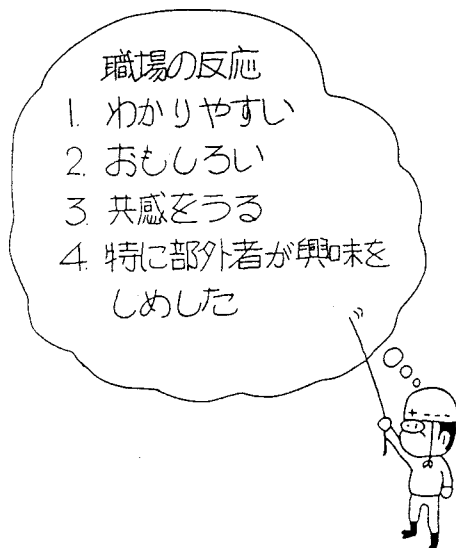 職場の反応
1. わかりやすい
2. おもしろい
3. 共感をうる
4. 特に部外者が興味を
しめした